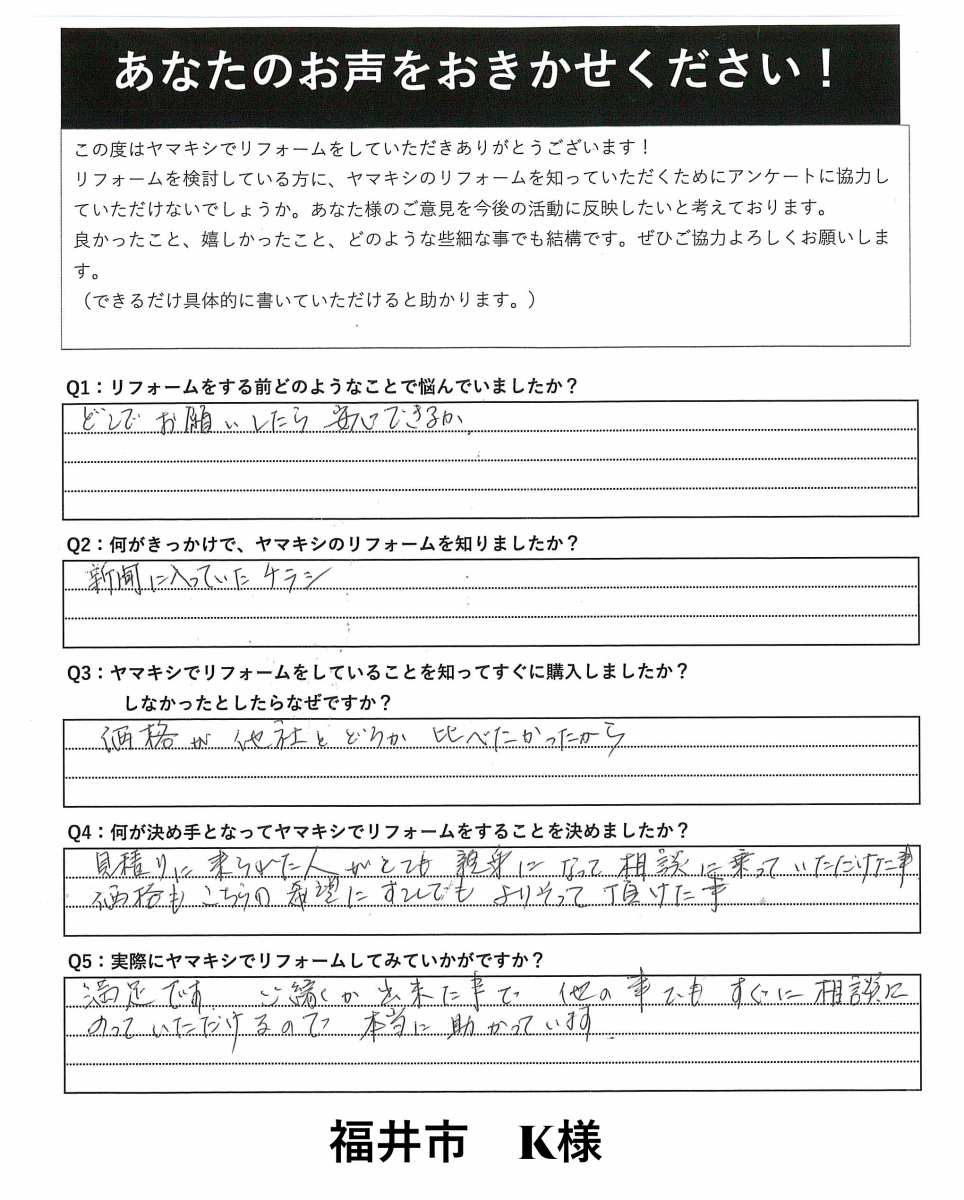 あなたのお声をおきかせください！
この度はヤマキシでリフォームをしていただきありがとうございます！
リフォームを検討している方に、ヤマキシのリフォームを知っていただくためにアンケートに協力し
ていただけないでしょうか。あなた様のご意見を今後の活動に反映したいと考えております。
良かったこと、嬉しかったこと、どのような些細な事でも結構です。ぜひご協力よろしくお願いしま
す。
（できるだけ具体的に書いていただけると助かります。）
Q1：リフォームをする前どのようなことで悩んでいましたか？
どこでお願いしたら安心できるか。
Q2：何がきっかけで、ヤマキシのリフォームを知りましたか？
新聞に入っていたチラシ
Q3：ヤマキシでリフォームをしていることを知ってすぐに購入しましたか？
しなかったとしたらなぜですか？
価格が他社とどうか比べたかったから
Q4：何が決め手となってヤマキシでリフォームをすることを決めましたか？
見積りに来られた人がとても親身になって相談に乗っていただけた事
価格もこちらの希望にすこしでもよりそって頂けた事
Q5：実際にヤマキシでリフォームしてみていかがですか？
満足です ご縁が出来た事で 他の事でもすぐに相談に
のっていただけるので 本当に助かっています。
福井市 K様